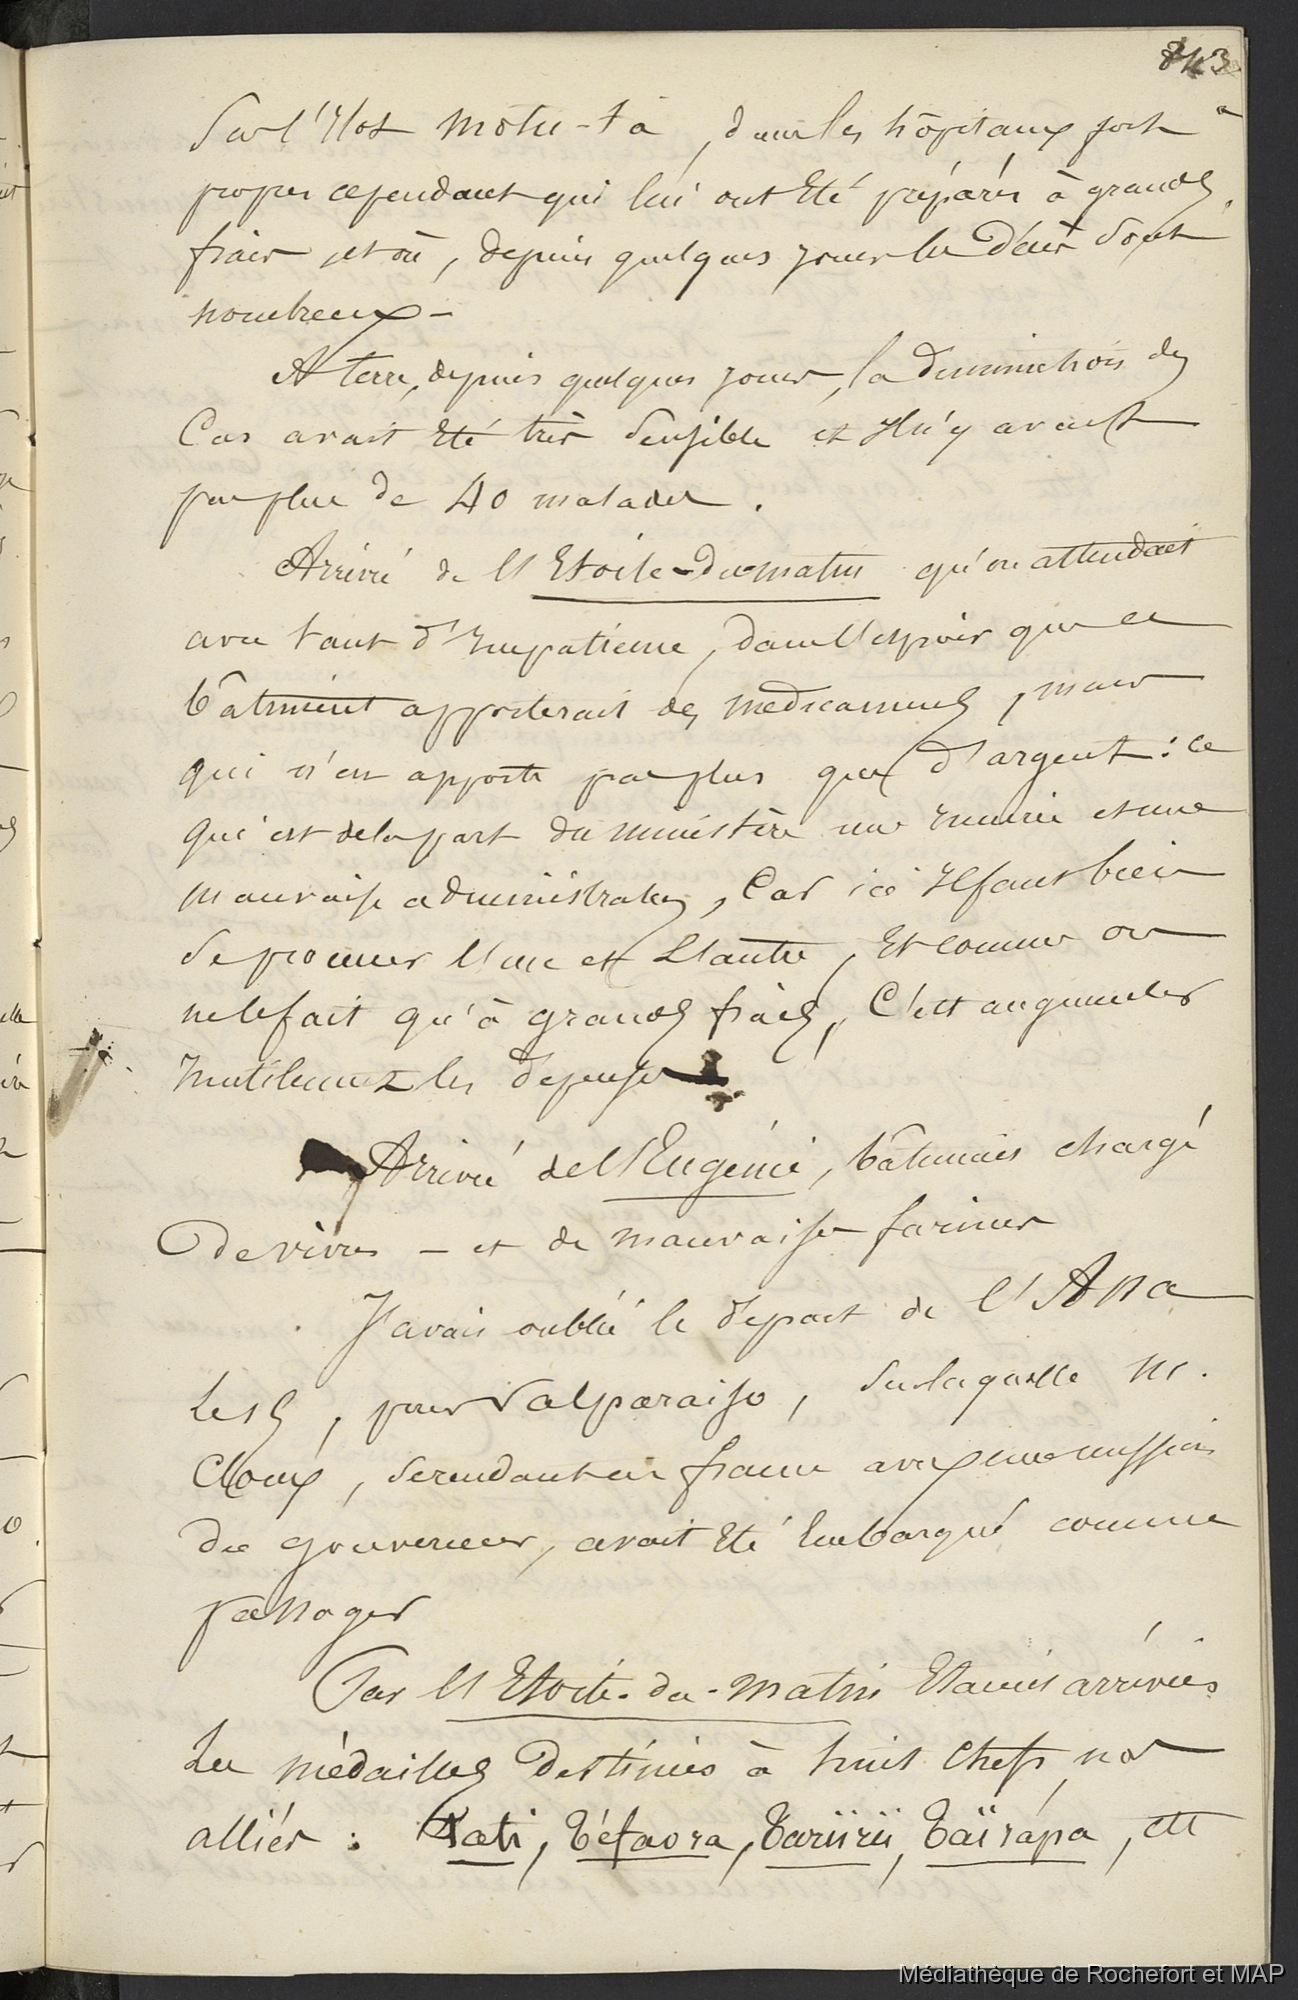 843
Sur l'Ilot Motu-ta, dans les hôpitaux fort
propres cependant qui lui ont Eté préparés à grands
frais et où, depuis quelques jours les Décès Sont
nombreux -
A terre, depuis quelques jours, la Diminution des
Cas avait Eté très Sensible et Il n'y avait
pas plus de 40 malades.
Arrivé de l'Etoile-du-matin qu'on attendait
avec tant d'Impatience, dans l'espoir que ce
bâtiment apporterait des médicaments, mais
qui n'en apporte pas plus que d'argent : ce
qui est de la part du ministère une et une
mauvaise administration, Car ici Il faut bien
Se procurer l'une et L'autre, Et comme on
ne le fait qu'à grands frais, C'est augmenter
Inutilement les dépenses
Arrivé de l'Eugénie, bâtiment chargé
De vivres - et de mauvaises farines
J'avais oublié le départ de l'Assa
, pour Valparaiso, Sur laquelle M.
Cloux, Se rendant en france avec une mission
du gouverneur, avait Eté Embarqué comme
passager
Par l'Etoile-du-matin Etaient arrivées
Les médailles Destinées à huit Chefs nos
alliés : Tati, Téfaora, Tariirii, Taïrapa, etc
Médiathèque de Rochefort et MAP